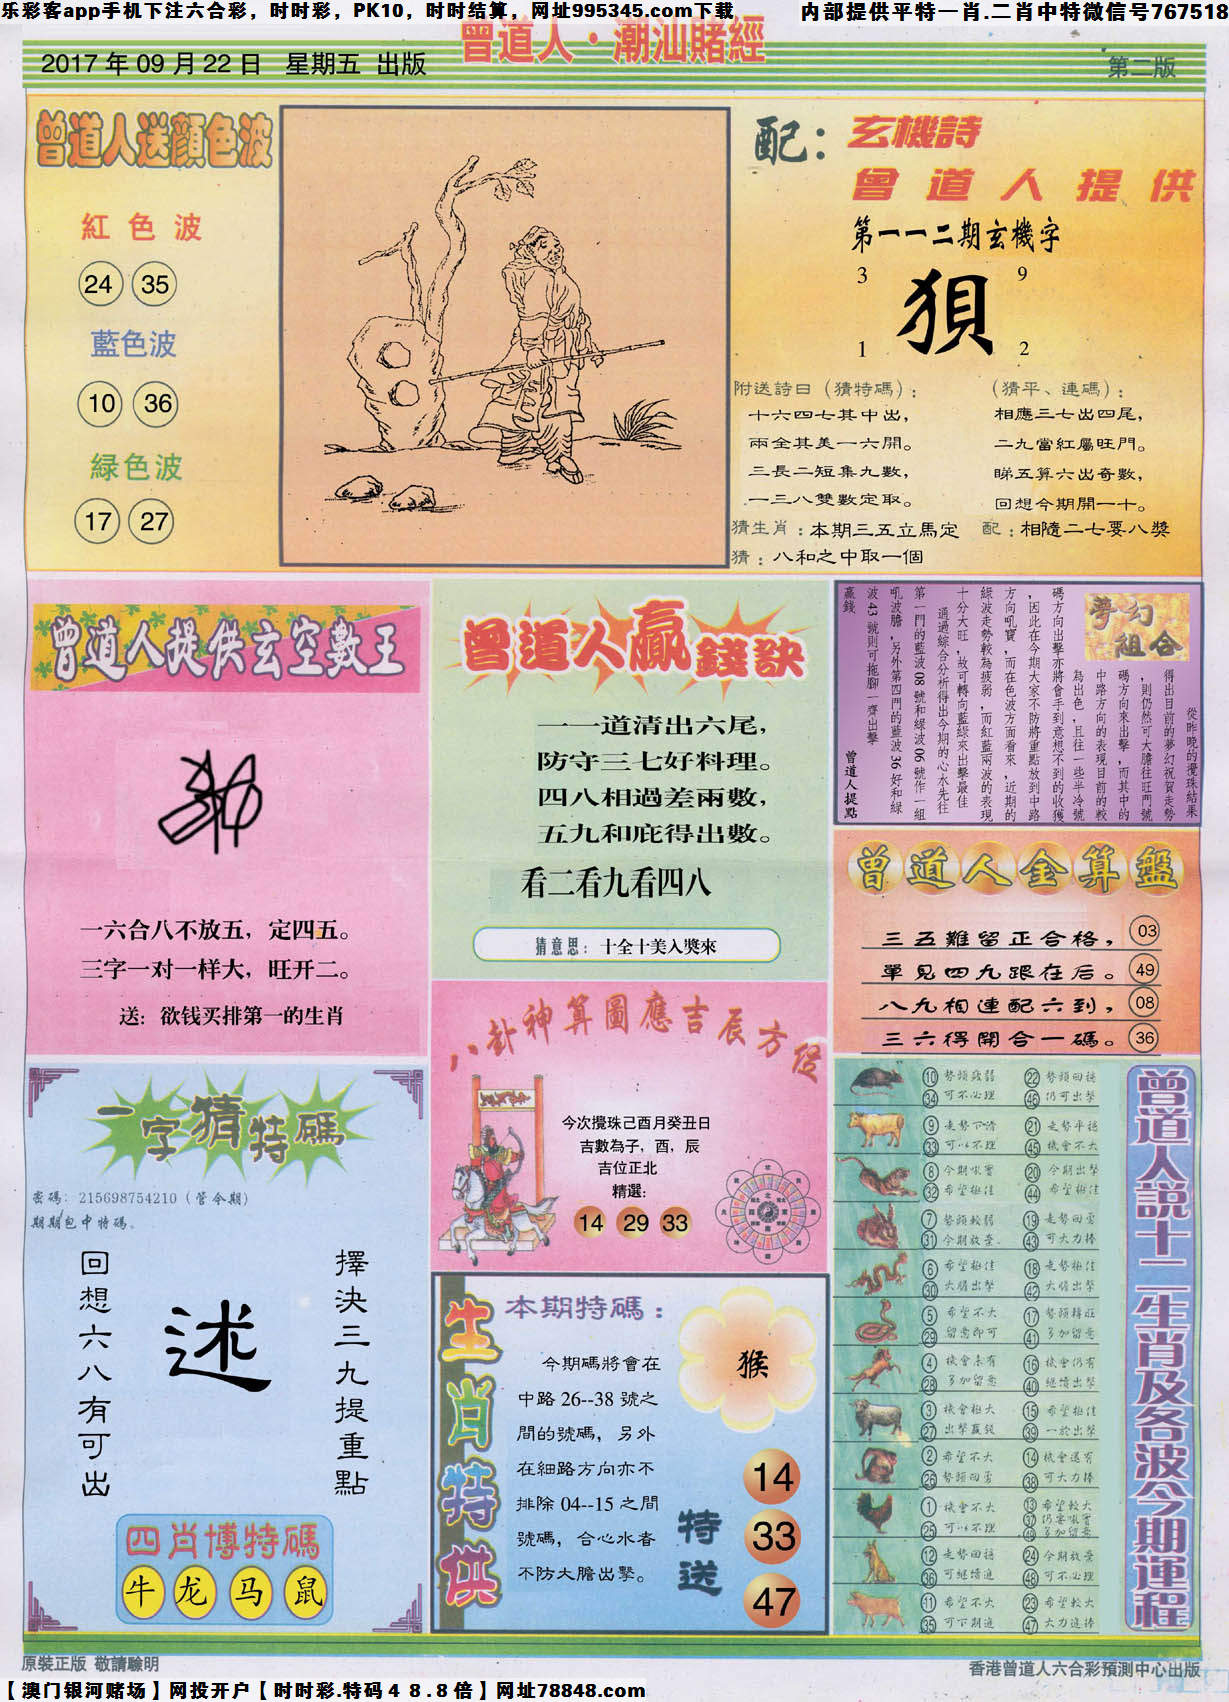 乐彩客app手机下注六合彩，时时彩，PK10，时时结算，网址995345.com下载
内部提供平特一肖.二肖中特微信号767518
曾道人·潮汕賭經
2017 年 09 月 22 日 星期五 出版
第二版
曾道人送顔色波
紅色波
24 35
藍色波
10 36
緑色波
17 27
配：
玄機詩
曾道人提供
第一一二期玄機字
3 9
狽
1 2
附送詩曰（猜特碼）：
十六四七其中出，
兩全其美一六開。
三長二短集九數，
一三八雙數定取。
（猜平、連碼）：
相應三七出四尾，
二九當紅屬旺門。
睇五算六出奇數，
回想今期開一十。
猜生肖：本期三五立馬定
配：相隨二七要八獎
猜：八和之中取一個
曾道人提供玄空數王
一六合八不放五，定四五。
三字一对一样大，旺开二。
送：欲钱买排第一的生肖
曾道人贏錢訣
一一道清出六尾，
防守三七好料理。
四八相過差兩數，
五九和庇得出數。
看二看九看四八
猜意思：十全十美入獎來
夢幻組合
從昨晚的攪珠結果
得出目前的夢幻祝賀走勢
，則仍然可大膽往旺門號
碼方向來出擊，而其中的
中路方向的表現目前的較
為出色，且往一些半冷號
碼方向出擊亦將會手到意想不到的收獲
，因此在今期大家不防將重點放到中路
方向吼寶，而在色波方面看來，近期的
綠波走勢較為疲弱，而紅藍兩波的表現
十分大旺，故可轉向藍綠來出擊最佳
通過綜合分析得出今期的心水先往
第一門的藍波 08 號和绿波 06 號作一組
吼波膽，另外第四門的藍波 36 好和緑
波 43 號則可拖腳一齊出擊
贏錢
曾道人提點
曾道人金算盤
三五難留正合格， 03
單見四九跟在后。 49
八九相連配六到， 08
三六得開合一碼。 36
八卦神算圖應吉辰方位
今次攪珠己酉月癸丑日
吉數為子，酉，辰
吉位正北
精選:
14 29 33
一字猜特碼
密碼：215698754210（管今期）
期期包中特碼。
擇決三九提重點
述
回想六八有可出
四肖博特碼
牛 龙 马 鼠
生肖特供
本期特碼：
今期碼將會在
中路 26--38 號之
間的號碼，另外
在細路方向亦不
排除 04--15 之間
號碼，合心水者
不防大膽出擊。
猴
特送
14
33
47
曾道人説十二生肖及各波今期運程
10 34 勢頭疲弱 可不必理
22 46 勢頭回穩 仍可出擊
9 33 走勢下滑 可以不理
21 45 走勢平穩 機會不大
8 32 今期吼寶 希望極佳
20 44 今期出擊 希望極佳
7 31 勢頭較弱 今期放棄
19 43 走勢回勇 可大力捧
6 30 希望極佳 大膽出擊
18 42 走勢極佳 大膽出擊
5 29 希望不大 留意即可
17 41 勢頭轉旺 多加留意
4 28 機會未有 多加留意
16 40 機會仍有 繼續出擊
3 27 機會極大 出擊贏錢
15 39 希望極佳 一於出擊
2 26 希望不大 勢頭回勇
14 38 機會還有 可大力捧
1 25 機會不大 可以不理
13 37 49 希望較大 仍要吼寶 多加留意
12 36 走勢回穩 可繼續追
24 48 今期放棄 可不必理
11 35 希望不大 可下期追
23 47 希望較大 大力追捧
原裝正版 敬請驗明
香港曾道人六合彩預測中心出版
【澳门银河赌场】网投开户【时时彩.特码４８.８倍】网址78848.com